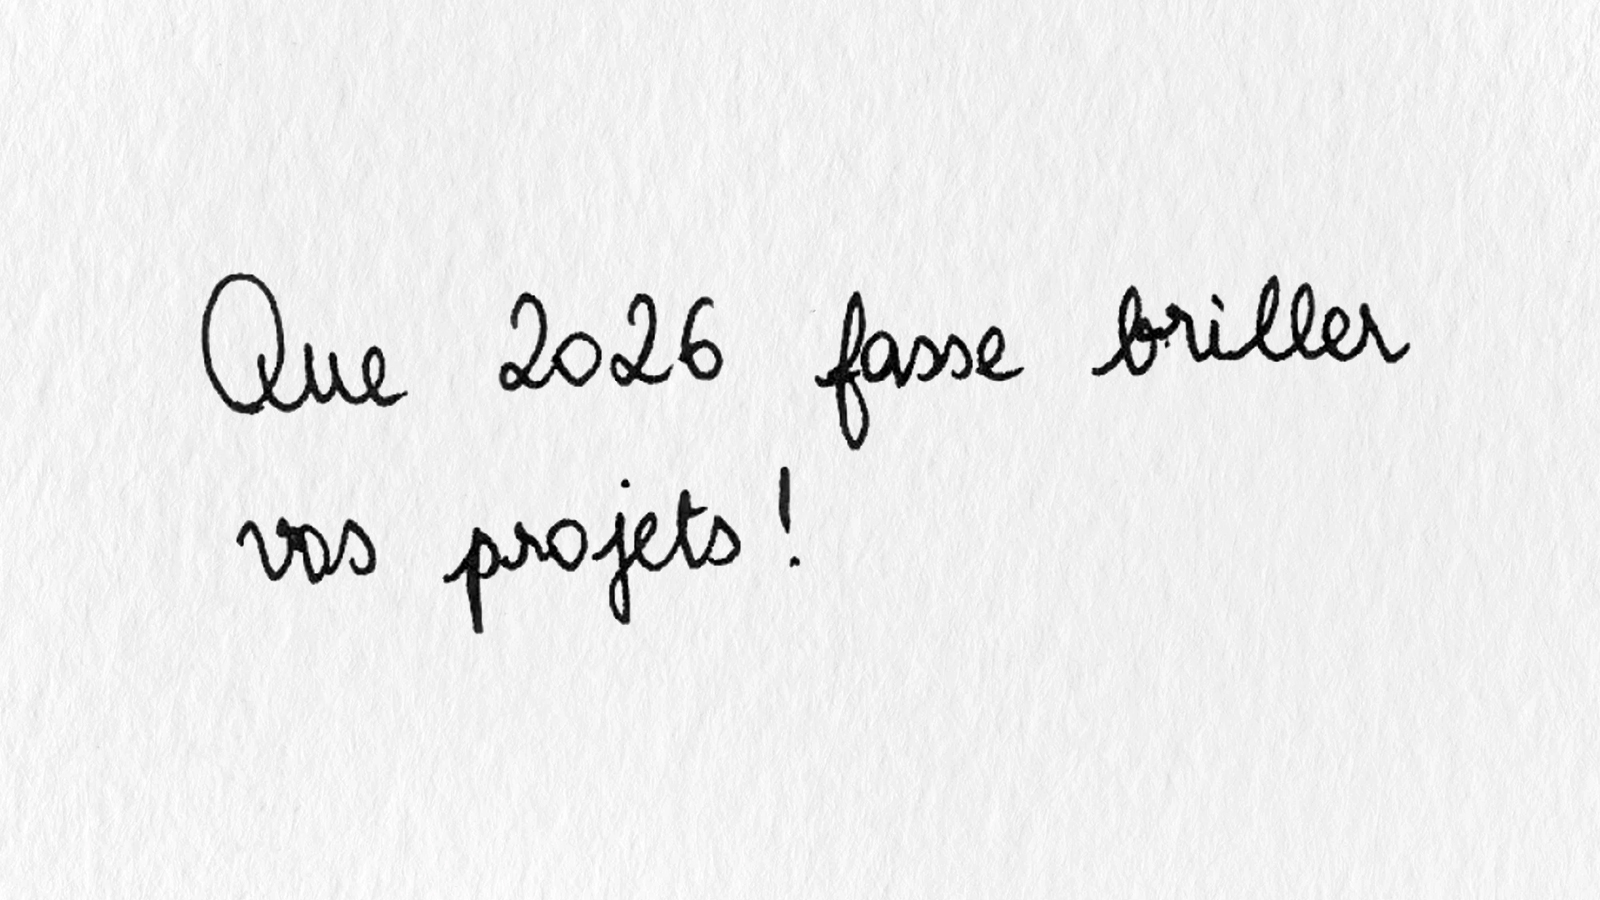 Que 2026 fasse briller
vos projets !